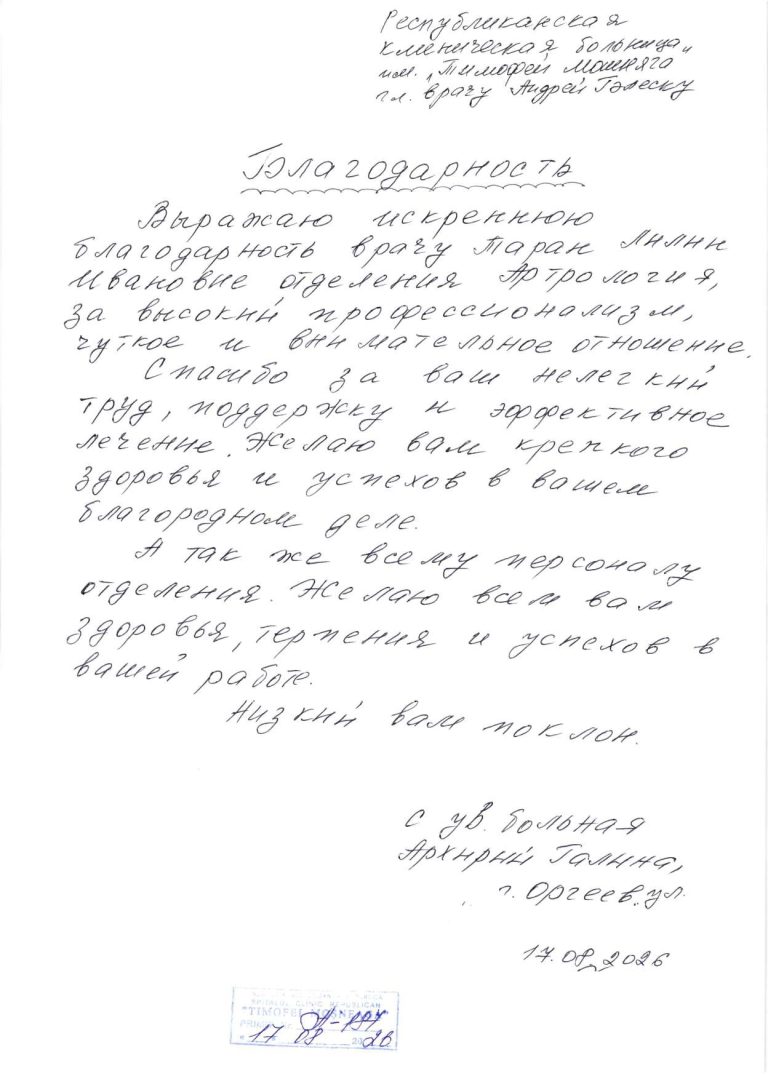 Республиканская
клиническая больница
им. "Тимофей Мошняга"
гл. врачу Андрей Гэлеску
Благодарность
Выражаю искреннюю
благодарность врачу Таран Лилии
Ивановне отделения Артрология,
за высокий профессионализм,
чуткое и внимательное отношение.
Спасибо за ваш нелегкий
труд, поддержку и эффективное
лечение. Желаю вам крепкого
здоровья и успехов в вашем
благородном деле.
А так же всему персоналу
отделения. Желаю всем вам
здоровья, терпения и успехов в
вашей работе.
Низкий вам поклон.
с ув. больная
Архирий Галина,
г. Оргеев, ул.
17.08.2026
SPITALUL CLINIC REPUBLICAN
"TIMOFEI MOȘNEAGA"
17 08 2026